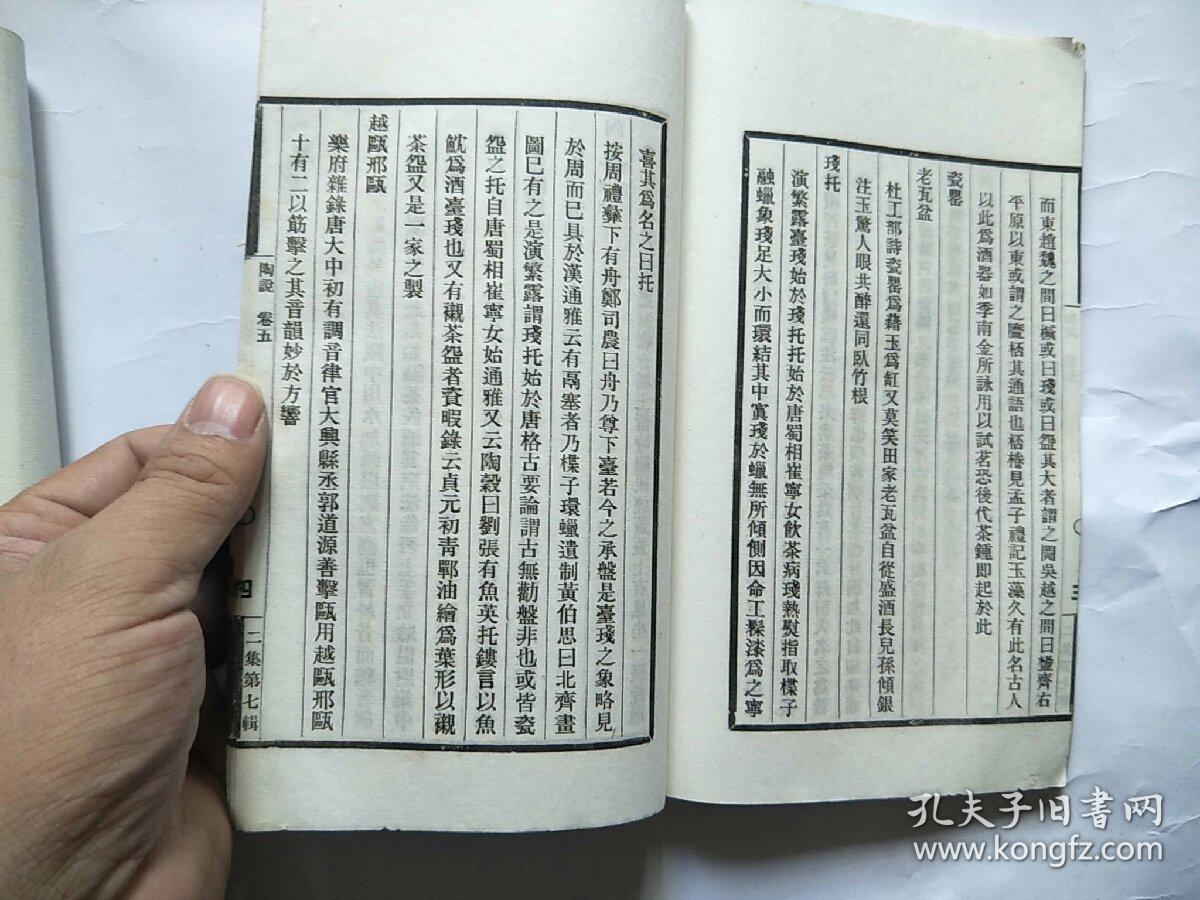 而東趙魏之間曰椷或曰琖或曰盌其大者謂之閜吳越之間曰㿿齊右
平原以東或謂之㿿桮其通語也桮棬見孟子禮記玉藻久有此名古人
以此爲酒器如季南金所詠用以試茗恐後代茶鍾卽起於此
瓷罌
老瓦盆
杜工部詩瓷罌爲藉玉爲缸又莫笑田家老瓦盆自從盛酒長兒孫傾銀
注玉驚人眼共醉還同臥竹根
琖托
演繁露臺琖始於琖托托始於唐蜀相崔寧女飲茶病琖熱熨指取楪子
融蠟象琖足大小而環結其中寘琖於蠟無所傾側因命工髹漆爲之寧
喜其爲名之曰托
按周禮彝下有舟鄭司農曰舟乃尊下臺若今之承盤是臺琖之象略見
於周而已具於漢通雅云有鬲塞者乃楪子環蠟遺制黃伯思曰北齊畫
圖已有之是演繁露謂琖托始於唐格古要論謂古無勸盤非也或皆瓷
盌之托自唐蜀相崔寧女始通雅又云陶穀曰劉張有魚英托鏤言以魚
魫爲酒臺琖也又有襯茶盌者資暇錄云貞元初靑鄆油繪爲葉形以襯
茶盌又是一家之製
越甌邢甌
樂府雜錄唐大中初有調音律官大興縣丞郭道源善擊甌用越甌邢甌
十有二以筯擊之其音韻妙於方響
陶說 卷五
四
二集第七輯
孔夫子旧书网
www.kongfz.com